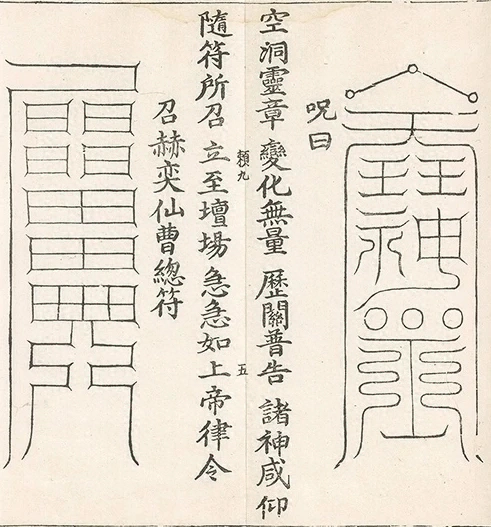 呪曰
空洞靈章 變化無量 歷關普告 諸神咸仰
隨符所召 立至壇場 急急如上帝律令
頼九
五
召赫奕仙曹總符